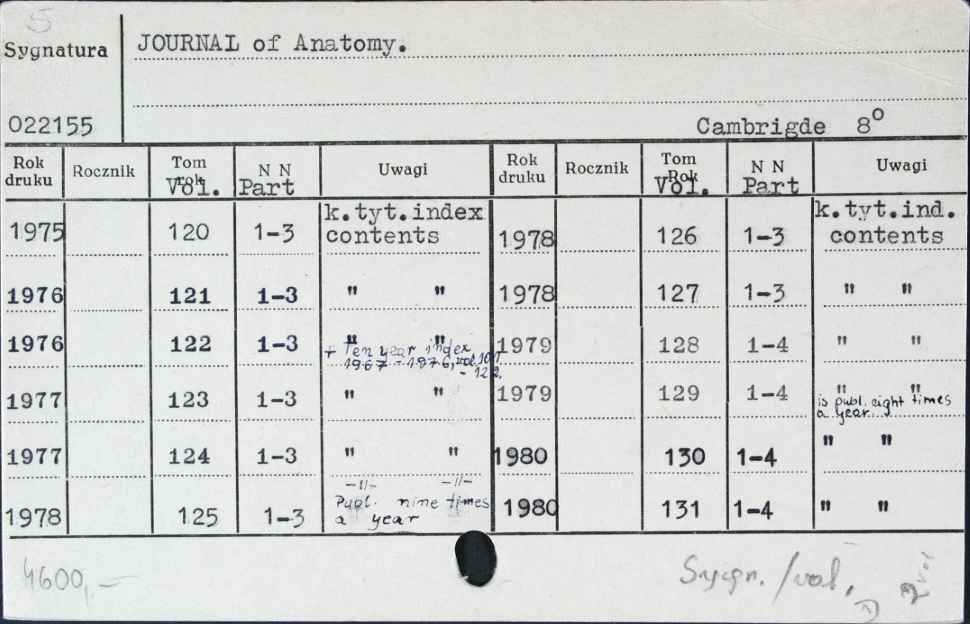 5
Sygnatura JOURNAL of Anatomy.
022155 Cambrigde 8º
Rok druku Rocznik Tom rok Vol. N N Part Uwagi Rok druku Rocznik Tom Rok Vol. N N Part Uwagi
1975 120 1-3 k.tyt.index contents 1978 126 1-3 k.tyt.ind. contents
1976 121 1-3 " " 1978 127 1-3 " "
1976 122 1-3 " " + Ten year index 1967 - 1976, vol.101 - 122. 1979 128 1-4 " "
1977 123 1-3 " " 1979 129 1-4 " " is publ. eight times a year.
1977 124 1-3 " " 1980 130 1-4 " "
1978 125 1-3 -"- -"- Publ. nine times a year 1980 131 1-4 " "
4600,- Sygn./vol. 2 vol